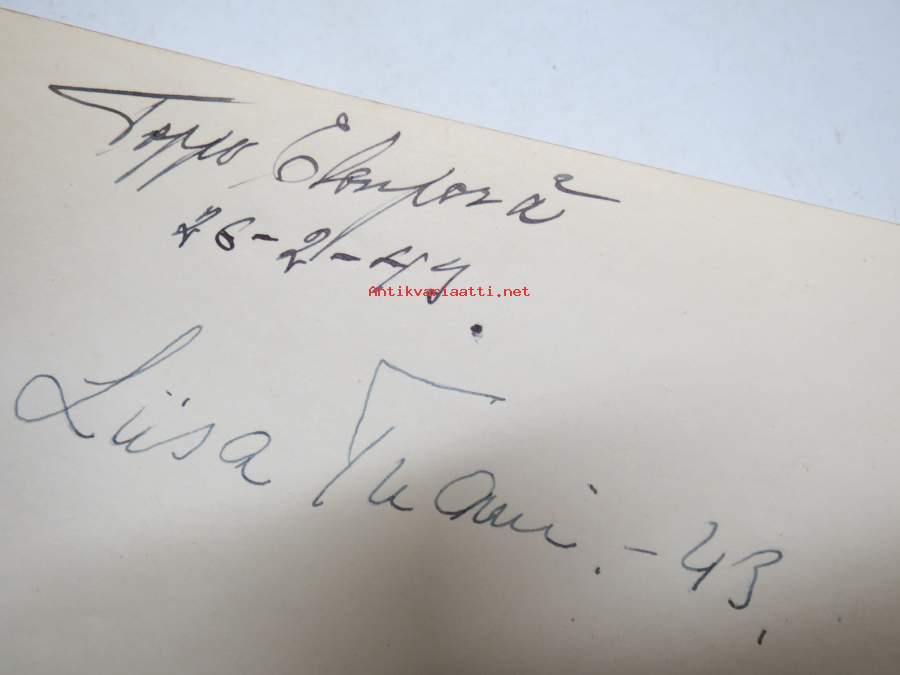 Toppo Elonperä
26-2-44.
Antikvariaatti.net
Liisa Tuomi. -43.